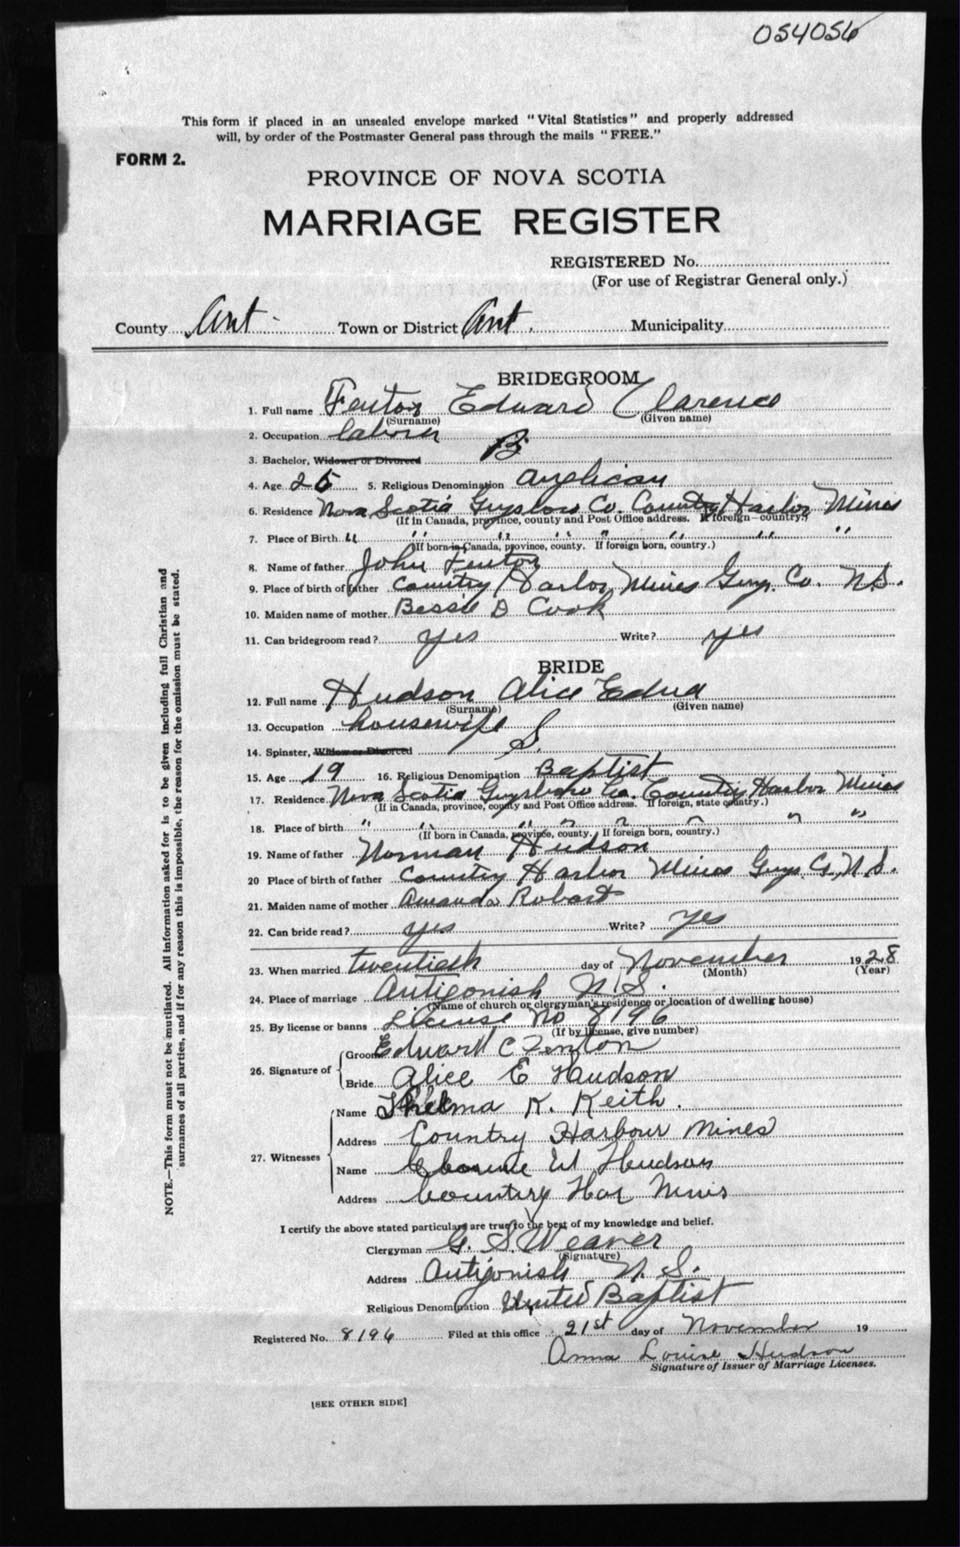 054056
This form if placed in an unsealed envelope marked "Vital Statistics" and properly addressed
will, by order of the Postmaster General pass through the mails "FREE."
FORM 2.
PROVINCE OF NOVA SCOTIA
MARRIAGE REGISTER
REGISTERED No.
(For use of Registrar General only.)
County Ant. Town or District Ant. Municipality
BRIDEGROOM
1. Full name Fenton Edward Clarence
(Surname) (Given name)
2. Occupation labourer
3. Bachelor, Widower or Divorced B
4. Age 25 5. Religious Denomination Anglican
6. Residence Nova Scotia Guysboro Co. Country Harbor Mines
(If in Canada, province, county and Post Office address. If foreign—country.)
7. Place of Birth " " " " " " "
(If born in Canada, province, county. If foreign born, country.)
8. Name of father John Fenton
9. Place of birth of father Country Harbor Mines Guys. Co. N.S.
10. Maiden name of mother Bessie D Cook
11. Can bridegroom read? yes Write? yes
BRIDE
12. Full name Hudson Alice Edna
(Surname) (Given name)
13. Occupation housewife
14. Spinster, Widow or Divorced S.
15. Age 19 16. Religious Denomination Baptist
17. Residence Nova Scotia Guysboro Co. Country Harbor Mines
(If in Canada, province, county and Post Office address. If foreign, state country.)
18. Place of birth " " " " " " "
(If born in Canada, province, county. If foreign born, country.)
19. Name of father Norman Hudson
20 Place of birth of father Country Harbor Mines Guys. Co, N.S.
21. Maiden name of mother Amanda Robart
22. Can bride read? yes Write? yes
23. When married twentieth day of November 1928
(Month) (Year)
24. Place of marriage Antigonish N.S.
(Name of church or clergyman's residence or location of dwelling house)
25. By license or banns License No 8196
(If by license, give number)
26. Signature of
Groom Edward C Fenton
Bride Alice E Hudson
27. Witnesses
Name Thelma K. Keith.
Address Country Harbour Mines
Name W Hudson
Address Country Har Mines
I certify the above stated particulars are true to the best of my knowledge and belief.
Clergyman G. S. Weaver
(Signature)
Address Antigonish N.S.
Religious Denomination United Baptist
Registered No. 8196 Filed at this office 21st day of November 19
Anna Louise Hudson
Signature of Issuer of Marriage Licenses.
[SEE OTHER SIDE]
NOTE.—This form must not be mutilated. All information asked for is to be given including full Christian and
surnames of all parties, and if for any reason this is impossible, the reason for the omission must be stated.